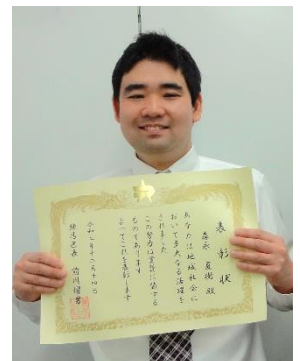 表彰状
殿
あなたは地域社会に
おいて多大なる活躍を
されました
この努力は賞賛に値する
ものであります
よってこれを表彰します
十二月十四日
区長 前川